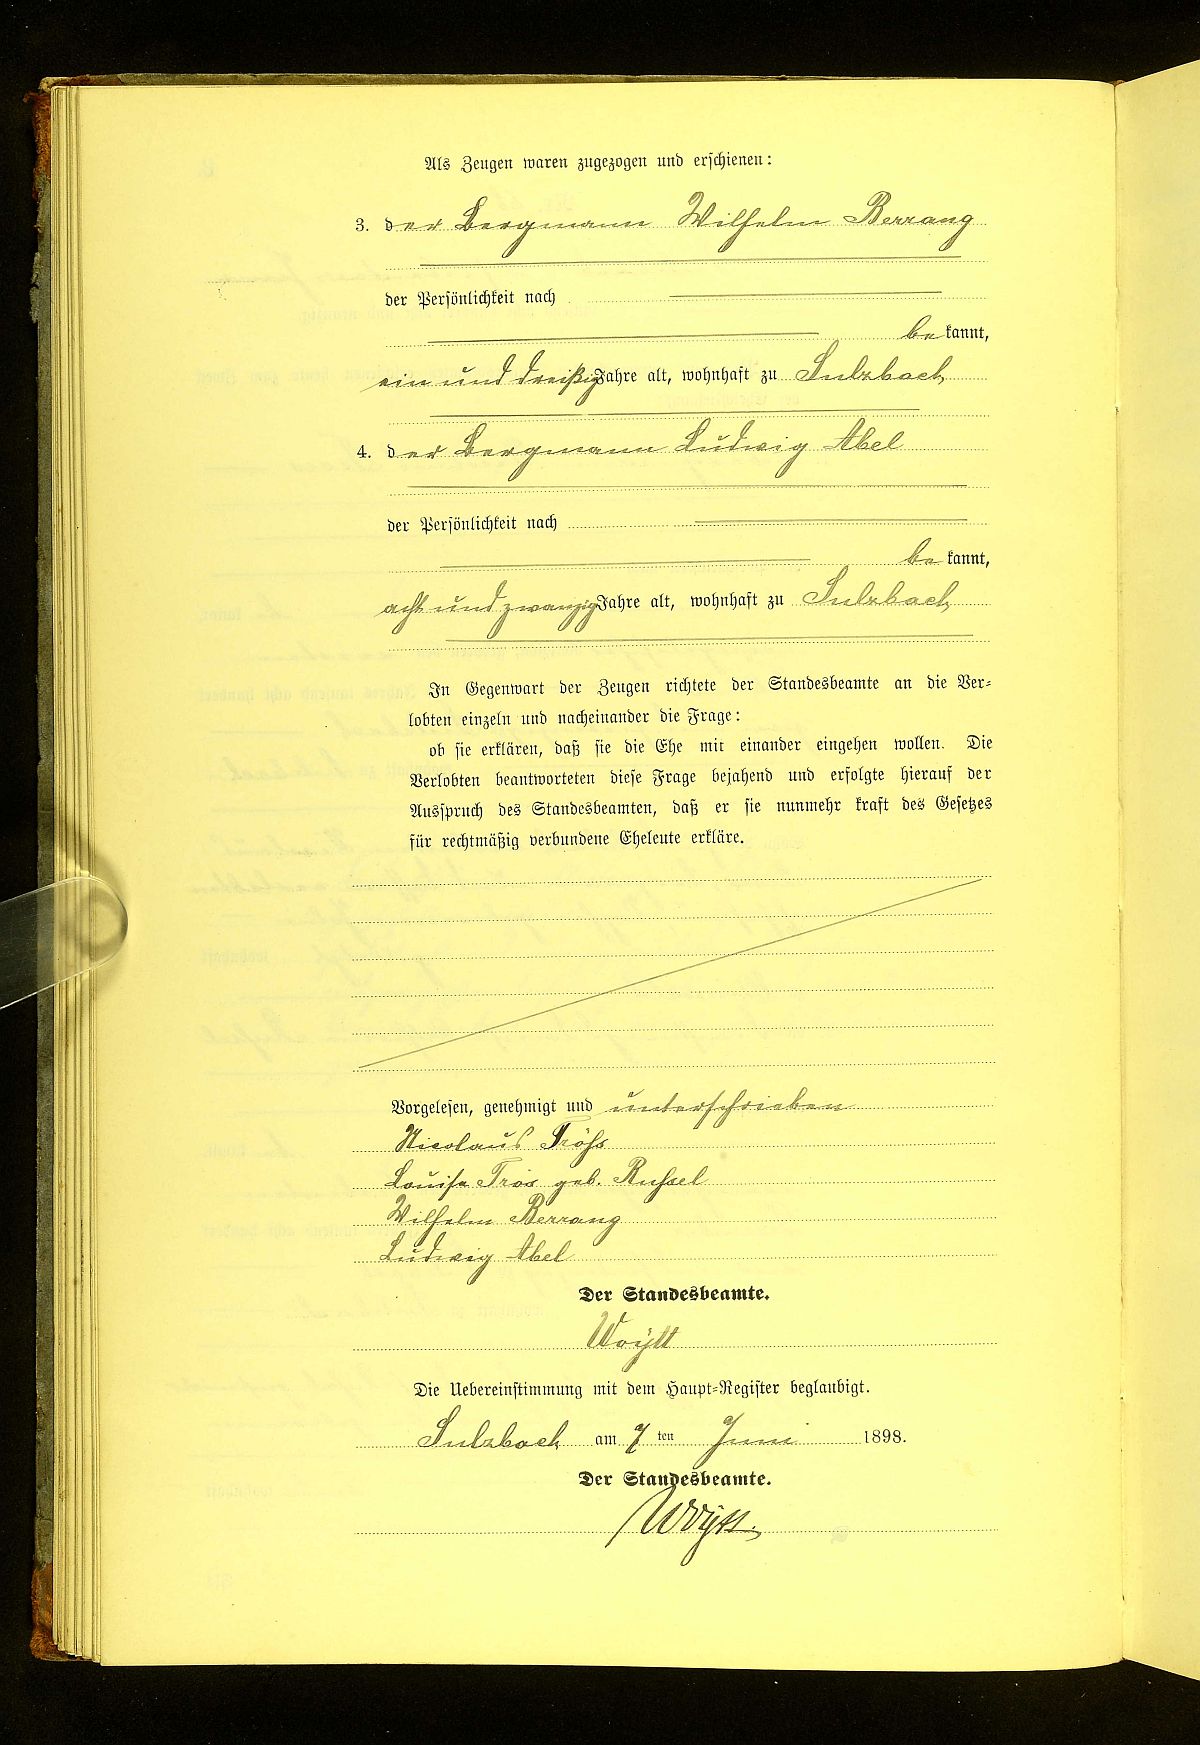 Als Zeugen waren zugezogen und erschienen:
3. der Bergmann Wilhelm Berrang
der Persönlichkeit nach
be kannt,
ein und dreißig Jahre alt, wohnhaft zu Sulzbach
4. der Bergmann Ludwig Abel
der Persönlichkeit nach
be kannt,
acht und zwanzig Jahre alt, wohnhaft zu Sulzbach
In Gegenwart der Zeugen richtete der Standesbeamte an die Ver-
lobten einzeln und nacheinander die Frage:
ob sie erklären, daß sie die Ehe mit einander eingehen wollen. Die
Verlobten beantworteten diese Frage bejahend und erfolgte hierauf der
Ausspruch des Standesbeamten, daß er sie nunmehr kraft des Gesetzes
für rechtmäßig verbundene Eheleute erkläre.
Vorgelesen, genehmigt und unterschrieben
Nicolaus Trößs
Louise Trös geb. Russel
Wilhelm Berrang
Ludwig Abel
Der Standesbeamte.
Woÿtt
Die Uebereinstimmung mit dem Haupt-Register beglaubigt.
Sulzbach am 7 ten Juni 1898.
Der Standesbeamte.
Woÿtt.